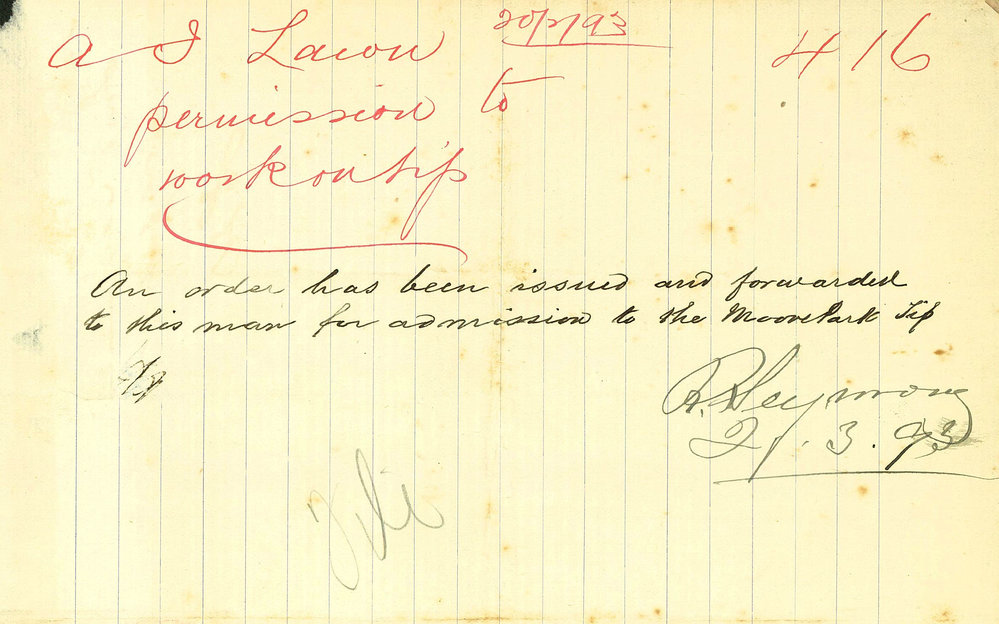 20/2/93
A J Lawn 416
permission to
work on tip
An order has been issued and forwarded
to this man for admission to the Moore Park Tip
R. Seymour
21.3.93
File